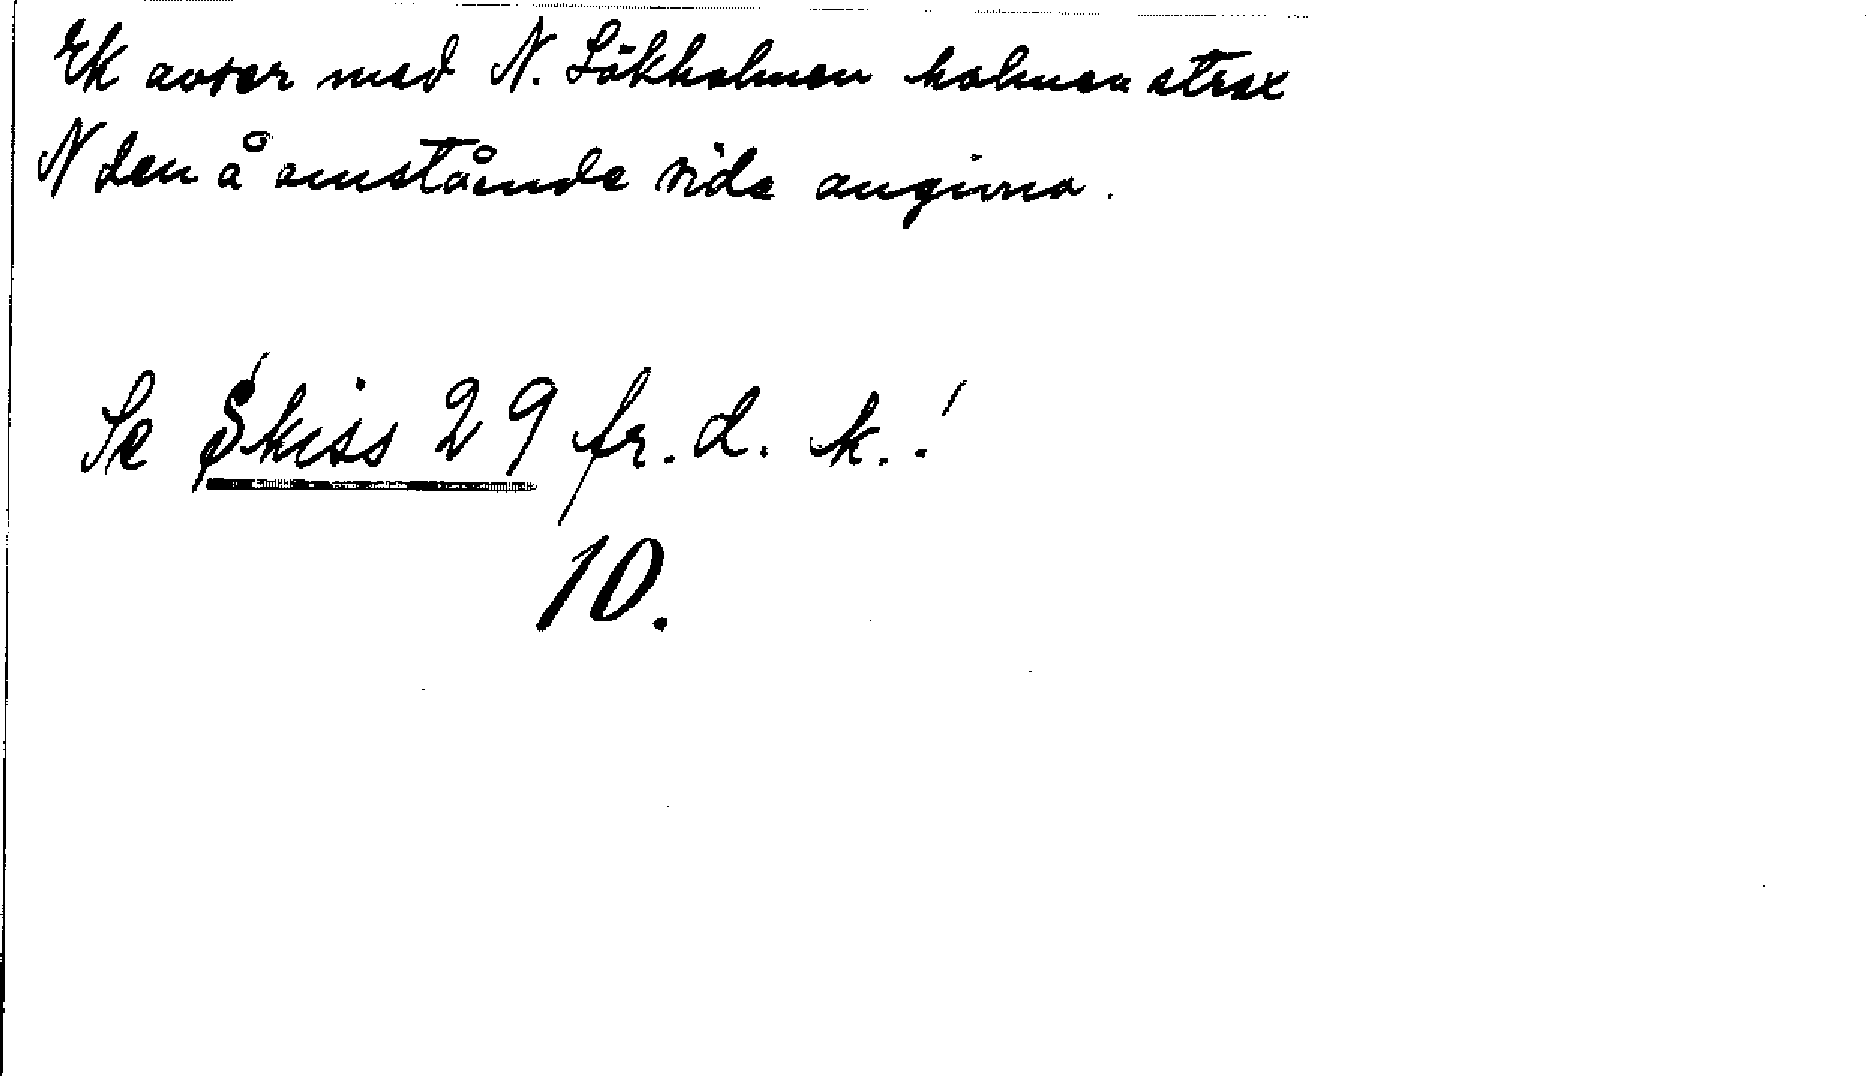 Ek avser med N. Lökholmen holmen strax
N den å omstående sida angivna.
Se Skiss 29 fr. d. k.!
10.